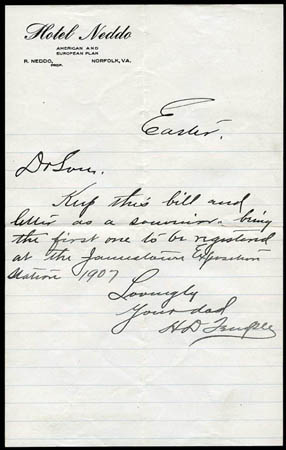 Hotel Neddo
AMERICAN AND
EUROPEAN PLAN
R. NEDDO, NORFOLK, VA.
PROP.
Easter.
Dr Son.
Keep this bill and
letter as a souvinir being
the first one to be registered
at the Jamestown Exposition
Station 1907
Lovingly
Your dad
H D